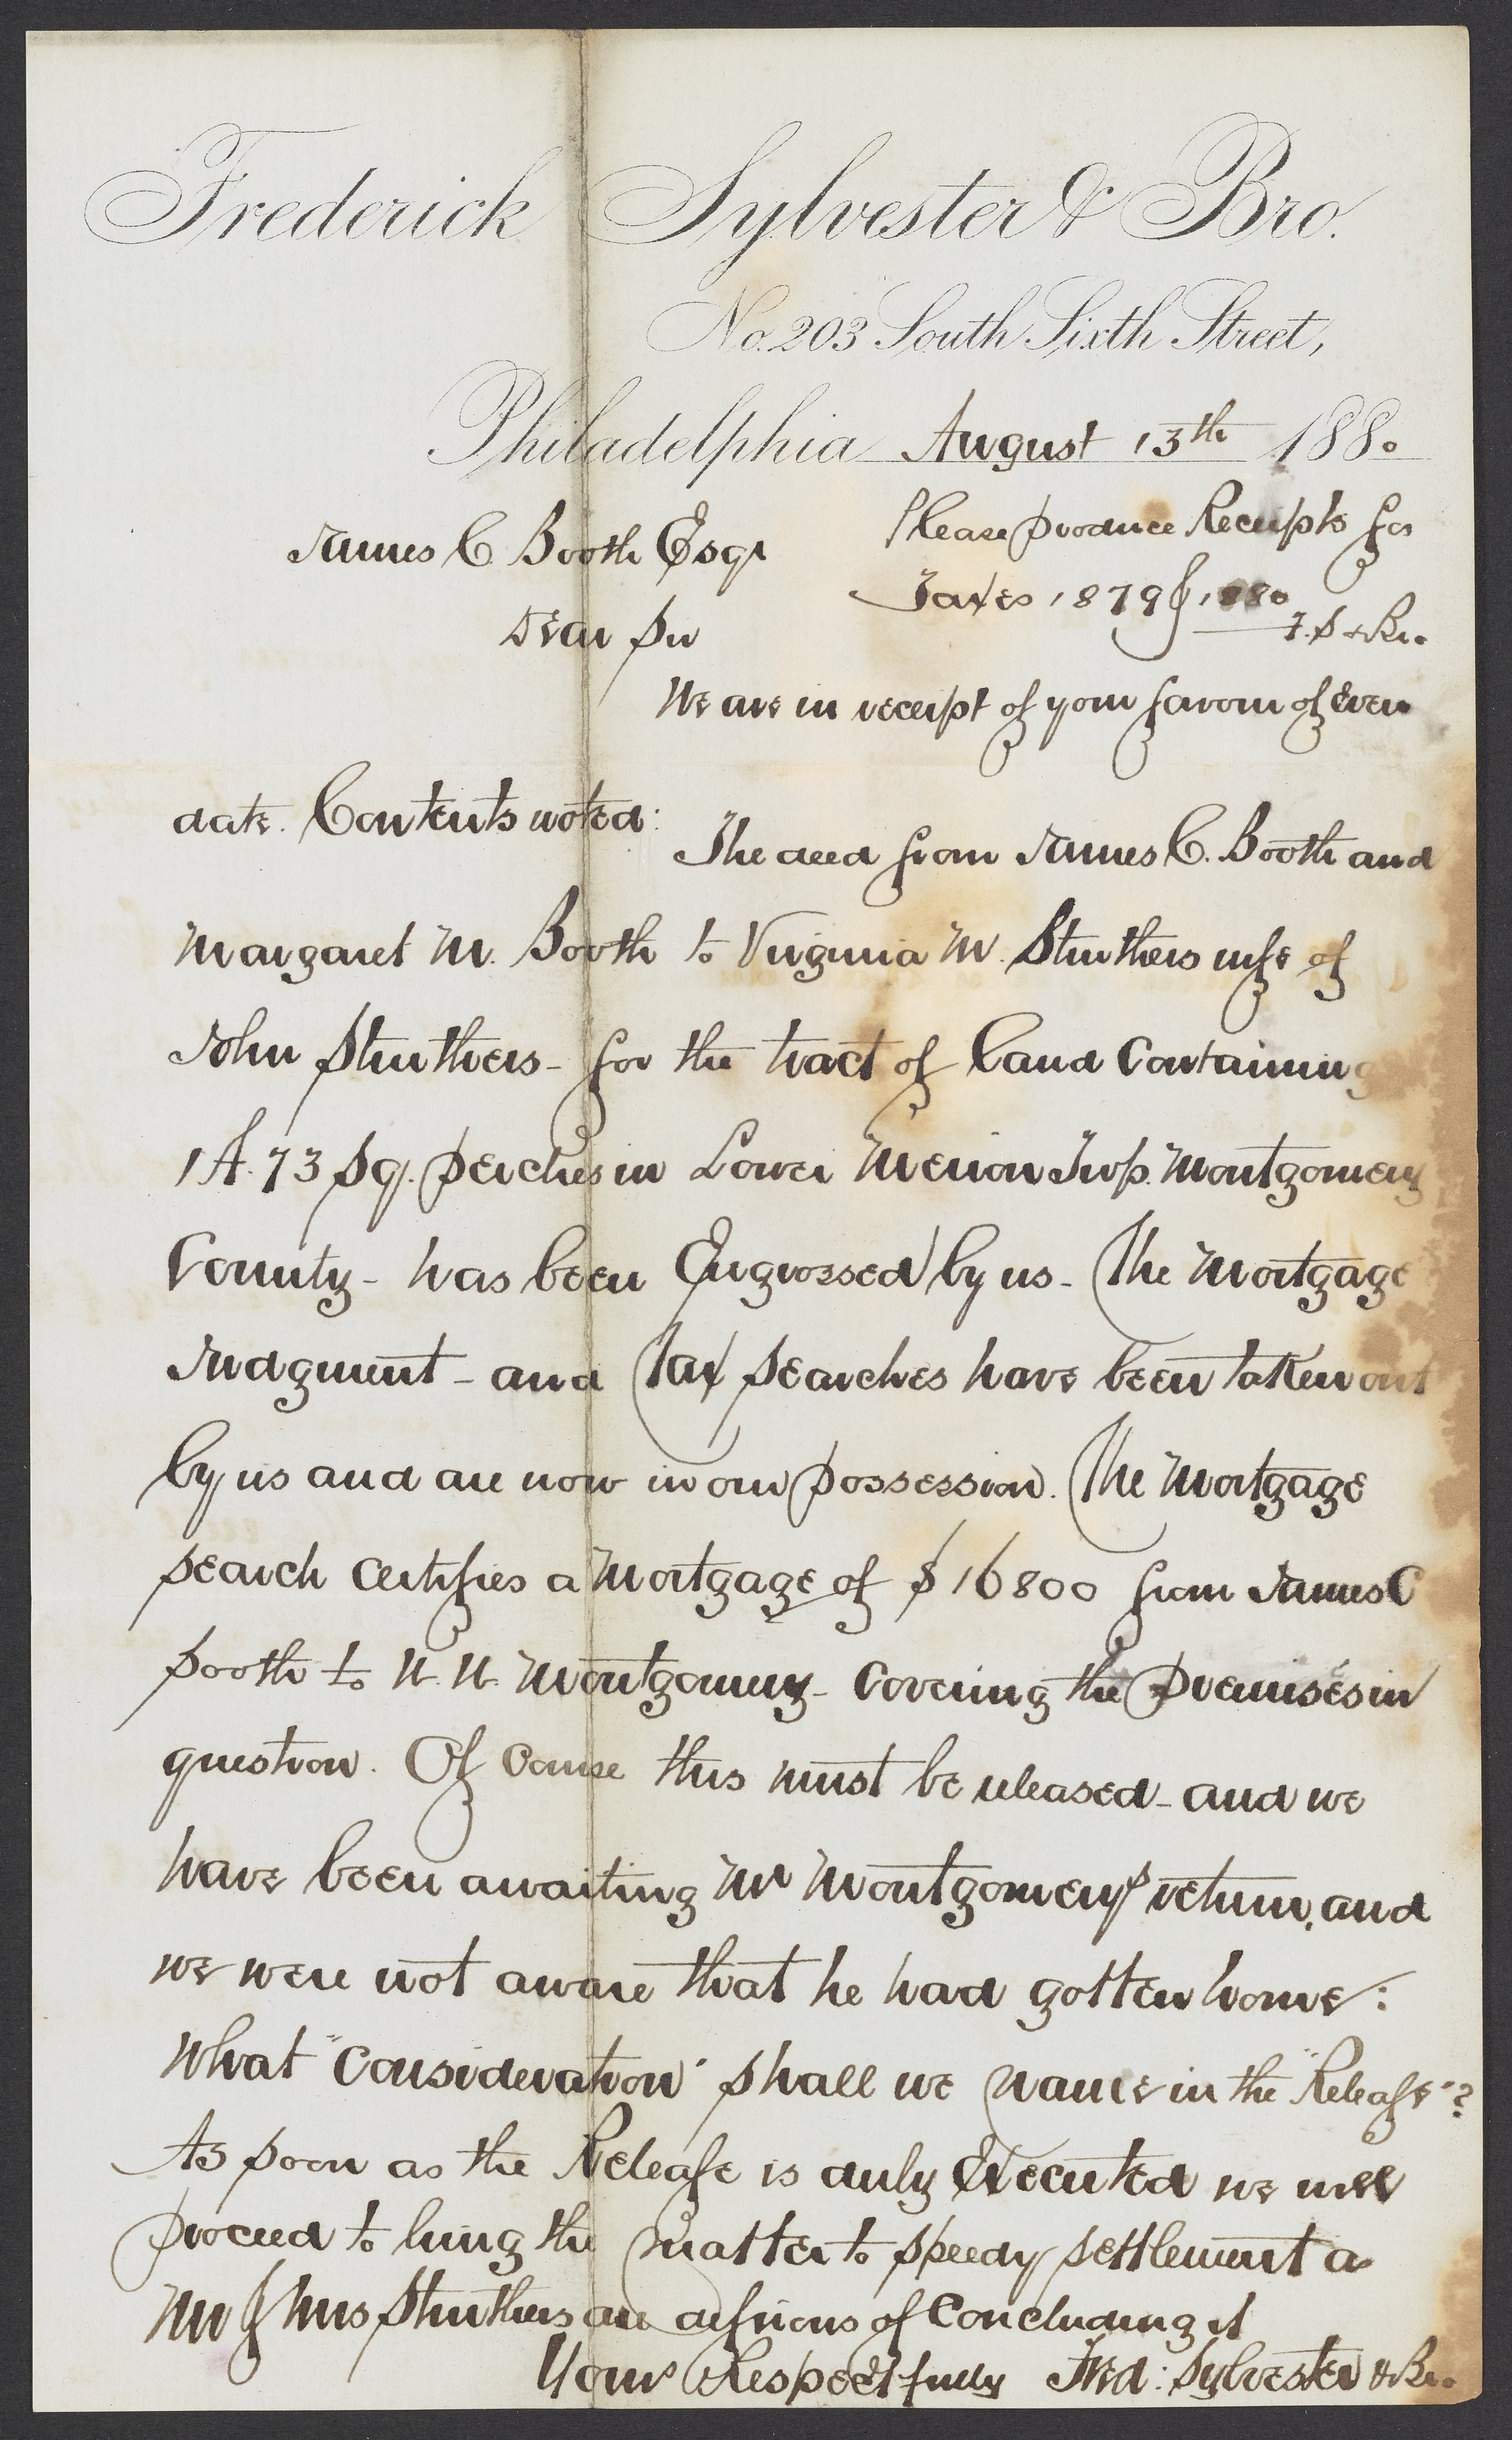 Frederick Sylvester & Bro.
No. 203 South Sixth Street,
Philadelphia August 13th 1880
James C Booth Esqr
Please produce Receipts for
Taxes 1879 & 1880
F. S & Bro.
Dear Sir
We are in receipt of your favour of Even
date. Contents noted:
The deed from James C. Booth and
Margaret M. Booth to Virginia M. Struthers wife of
John Struthers - for the tract of land Containing
1 A. 73 Sq. perches in Lower Merion Twp. Montgomery
County - has been Engrossed by us - The Mortgage
Judgment - and Tax Searches have been taken out
by us and are now in our possession. The Mortgage
Search Certifies a Mortgage of $16800 from James C
Booth to N. N. Montgomery - Covering the premises in
question. Of Course this must be released - and we
have been awaiting Mr Montgomerys return, and
we were not aware that he had gotten home:
What "Consideration" shall we name in the "Release"?
As soon as the Release is duly Executed we will
proceed to bring the matter to speedy settlement as
Mr & Mrs Struthers are desirous of Concluding it
Yours Respectfully Fred: Sylvester & Bro.